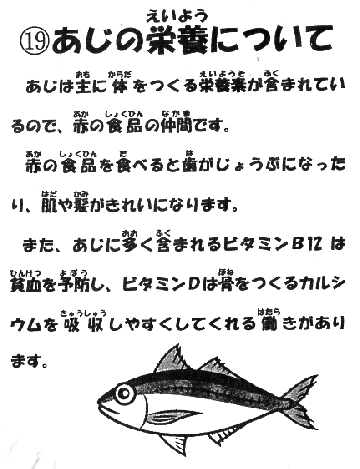 ⑲あじの栄養について
あじは主に体をつくる栄養素が含まれてい
るので、赤の食品の仲間です。
赤の食品を食べると歯がじょうぶになった
り、肌や髪がきれいになります。
また、あじに多く含まれるビタミンB12は
貧血を予防し、ビタミンDは骨をつくるカルシ
ウムを吸収しやすくしてくれる働きがあり
ます。